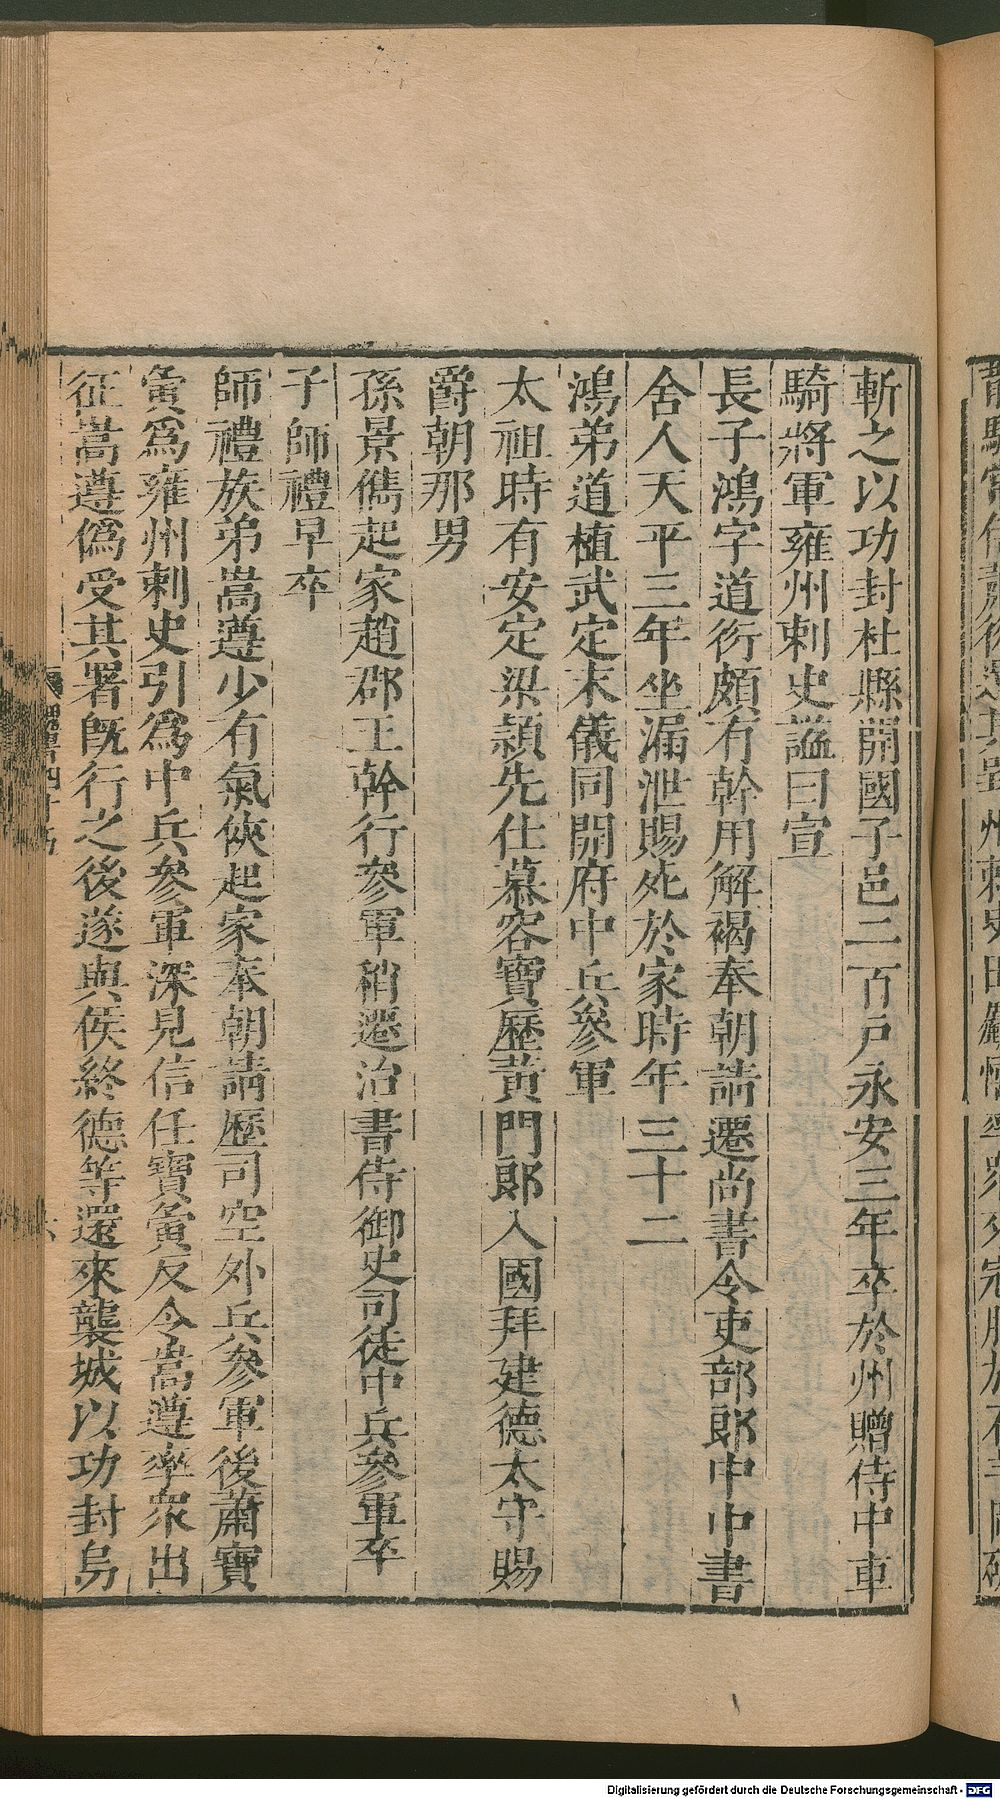 斬之以功封杜縣開國子邑二百戶永安三年卒於州贈侍中車
騎將軍雍州刺史諡曰宣
長子鴻字道衍頗有幹用解褐奉朝請遷尚書令吏部郎中中書
舍人天平三年坐漏泄賜死於家時年三十二
鴻弟道植武定末儀同開府中兵參軍
太祖時有安定梁頴先仕慕容寶歷黃門郎入國拜建德太守賜
爵朝那男
孫景儁起家趙郡王幹行參軍稍遷治書侍御史司徒中兵參軍卒
子師禮早卒
師禮族弟嵩遵少有氣俠起家奉朝請歷司空外兵參軍後蕭寶
夤爲雍州刺史引爲中兵參軍深見信任寶夤反令嵩遵率衆出
征嵩遵僞受其署旣行之後遂與侯終德等還來襲城以功封烏
Digitalisierung gefördert durch die Deutsche Forschungsgemeinschaft - DFG